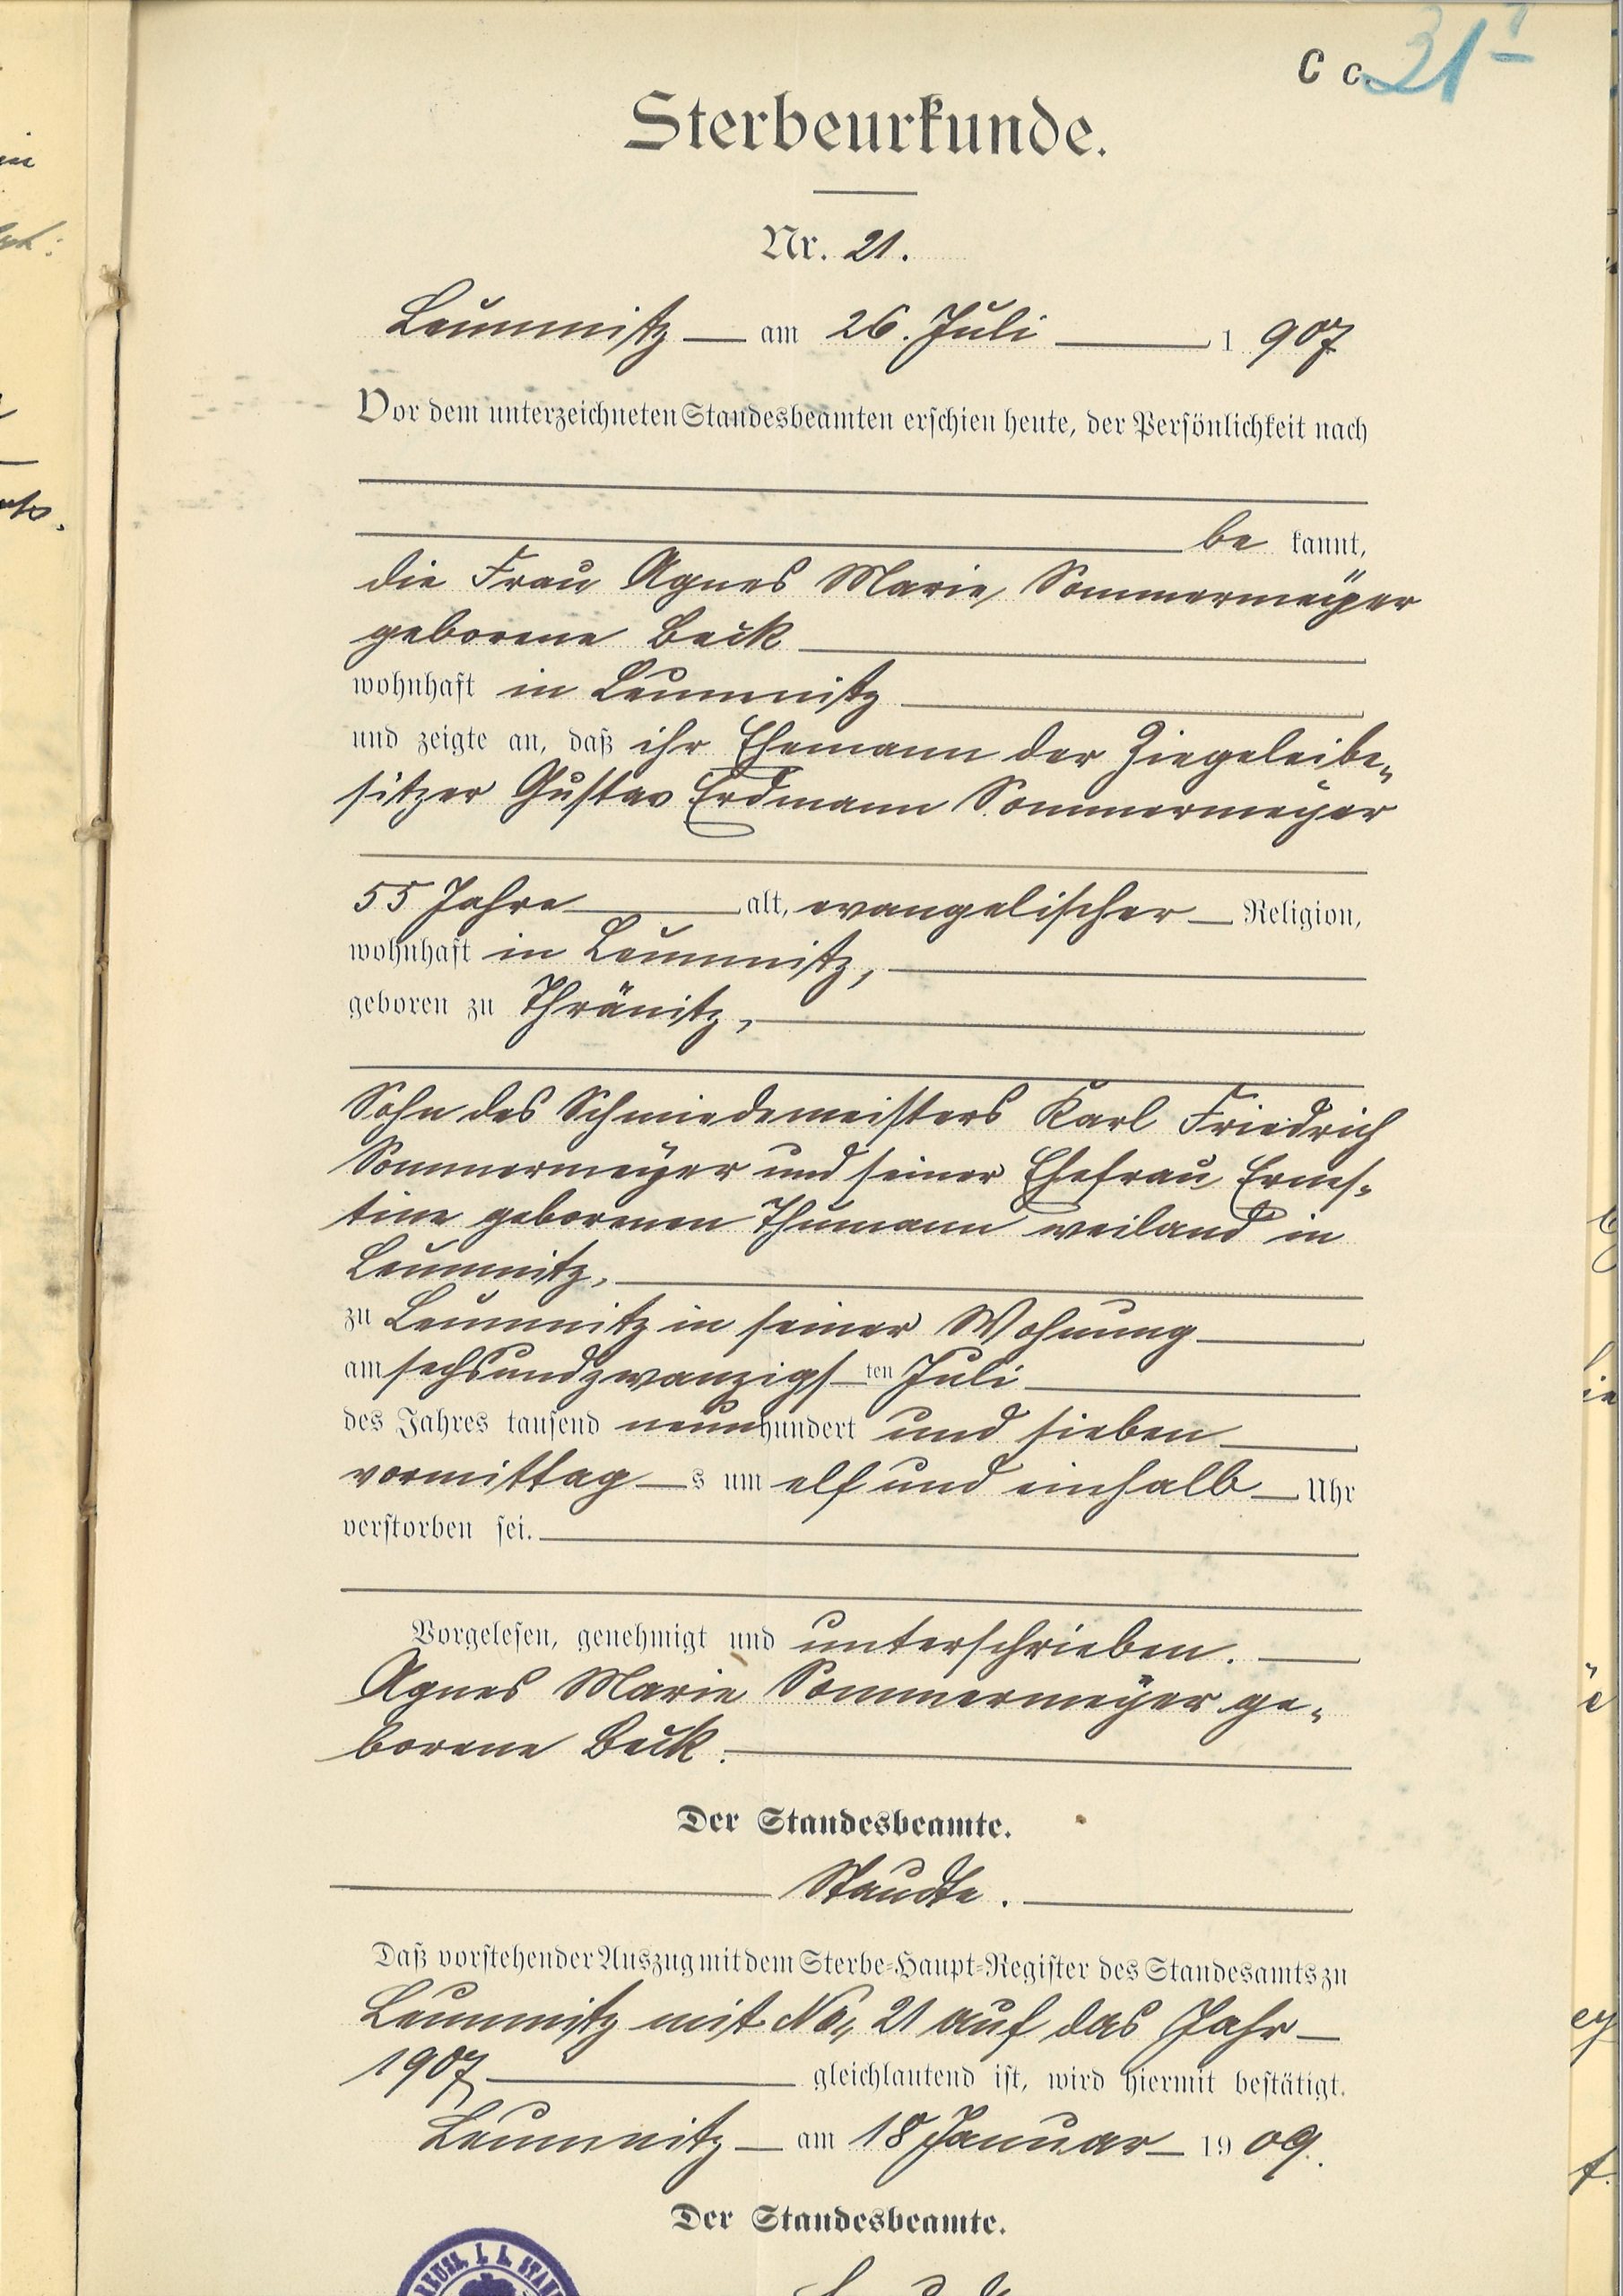 C c. 31
Sterbeurkunde.
Nr. 21.
Leumnitz am 26. Juli 1907
Vor dem unterzeichneten Standesbeamten erschien heute, der Persönlichkeit nach
be kannt,
die Frau Agnes Marie Sommermeÿer
geborene Beck
wohnhaft in Leumnitz
und zeigte an, daß ihr Ehemann der Ziegeleibe-
sitzer Gustav Erdmann Sommermeÿer
55 Jahre alt, evangelischer Religion,
wohnhaft in Leumnitz,
geboren zu Thränitz,
Sohn des Schmiedemeisters Karl Friedrich
Sommermeÿer und seiner Ehefrau Ernes-
tine geborenen Thumann weiland in
Leumnitz,
zu Leumnitz in seiner Wohnung
am sechsundzwanzigsten Juli
des Jahres tausend neunhundert und sieben
vormittags um elf und einhalb Uhr
verstorben sei.
Vorgelesen, genehmigt und unterschrieben.
Agnes Marie Sommermeÿer ge-
borene Beck.
Der Standesbeamte.
Staudte.
Daß vorstehender Auszug mit dem Sterbe-Haupt-Register des Standesamts zu
Leumnitz mit No. 21 auf das Jahr
1907 gleichlautend ist, wird hiermit bestätigt.
Leumnitz am 18 Januar 1909.
Der Standesbeamte.